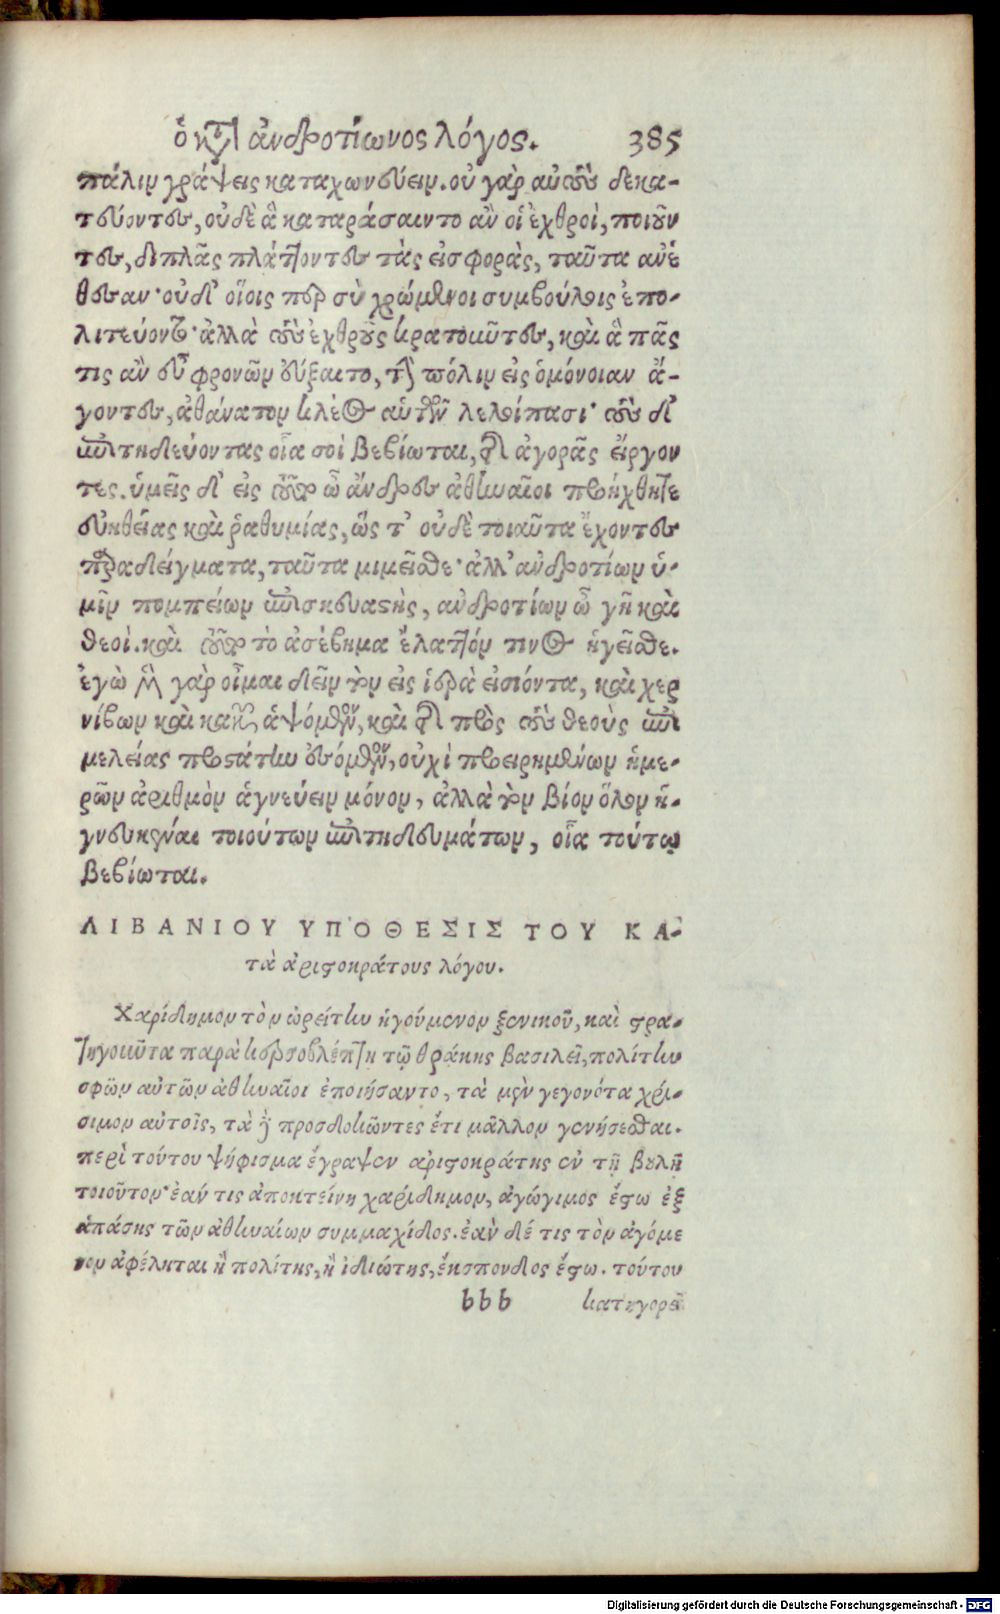 ὁ κατ' ἀνδροτίωνος λόγος. 385
πάλιν γράψεις καταχωνεύειν. οὐ γὰρ αὐτοὺς δεκα-
τεύοντες, οὐδὲ ἃ καταράσαιντο ἂν οἱ ἐχθροὶ, ποιοῦν
τες, διπλᾶς πλάττοντες τὰς εἰσφορὰς, ταῦτα ἀνέ
θεσαν· οὐδ' οἵοις περ σὺ χρώμενοι συμβούλοις ἐπο-
λιτεύοντο· ἀλλὰ τοὺς ἐχθροὺς κρατοῦντες, καὶ ἃ πᾶς
τις ἂν εὖ φρονῶν εὔξαιτο, τὴν πόλιν εἰς ὁμόνοιαν ἄ-
γοντες, ἀθάνατον κλέος αὑτῶν λελοίπασι· τοὺς δ'
ἐπιτηδεύοντας οἷα σοὶ βεβίωται, τῆς ἀγορᾶς εἴργον
τες. ὑμεῖς δ' εἰς τοῦτο ὦ ἄνδρες ἀθηναῖοι προήχθητε
εὐηθείας καὶ ῥαθυμίας, ὥς τ' οὐδὲ τοιαῦτα ἔχοντες
παραδείγματα, ταῦτα μιμεῖσθε· ἀλλ' ἀνδροτίων ὑ-
μῖν πομπείων ἐπισκευαστὴς, ἀνδροτίων ὦ γῆ καὶ
θεοί. καὶ τοῦτο τὸ ἀσέβημα ἔλαττόν τινος ἡγεῖσθε.
ἐγὼ μὲν γὰρ οἶμαι δεῖν τὸν εἰς ἱερὰ εἰσιόντα, καὶ χερ
νίβων καὶ κανῶν ἁψόμενον, καὶ τῆς πρὸς τοὺς θεοὺς ἐπι
μελείας προστάτην ἐσόμενον, οὐχὶ προειρημένων ἡμε-
ρῶν ἀριθμὸν ἁγνεύειν μόνον, ἀλλὰ τὸν βίον ὅλον ἡ-
γνευκέναι τοιούτων ἐπιτηδευμάτων, οἷα τούτῳ
βεβίωται.
ΛΙΒΑΝΙΟΥ ΥΠΟΘΕΣΙΣ ΤΟΥ ΚΑ-
τὰ ἀριστοκράτους λόγου.
Χαρίδημον τὸν ὠρείτην ἡγούμενον ξενικοῦ, καὶ στρα-
τηγοῦντα παρὰ κερσοβλέπτῃ τῷ θρᾴκης βασιλεῖ, πολίτην
σφῶν αὐτῶν ἀθηναῖοι ἐποιήσαντο, τὰ μὲν γεγονότα χρή-
σιμον αὐτοῖς, τὰ δὲ προσδοκῶντες ἔτι μᾶλλον γενήσεσθαι.
περὶ τούτου ψήφισμα ἔγραψεν ἀριστοκράτης ἐν τῇ βουλῇ
τοιοῦτον· ἐάν τις ἀποκτείνῃ χαρίδημον, ἀγώγιμος ἔστω ἐξ
ἁπάσης τῶν ἀθηναίων συμμαχίδος. ἐὰν δέ τις τὸν ἀγόμε
νον ἀφέληται ἢ πολίτης, ἢ ἰδιώτης, ἔκσπονδος ἔστω. τούτου
bbb κατηγορεῖ
Digitalisierung gefördert durch die Deutsche Forschungsgemeinschaft - DFG